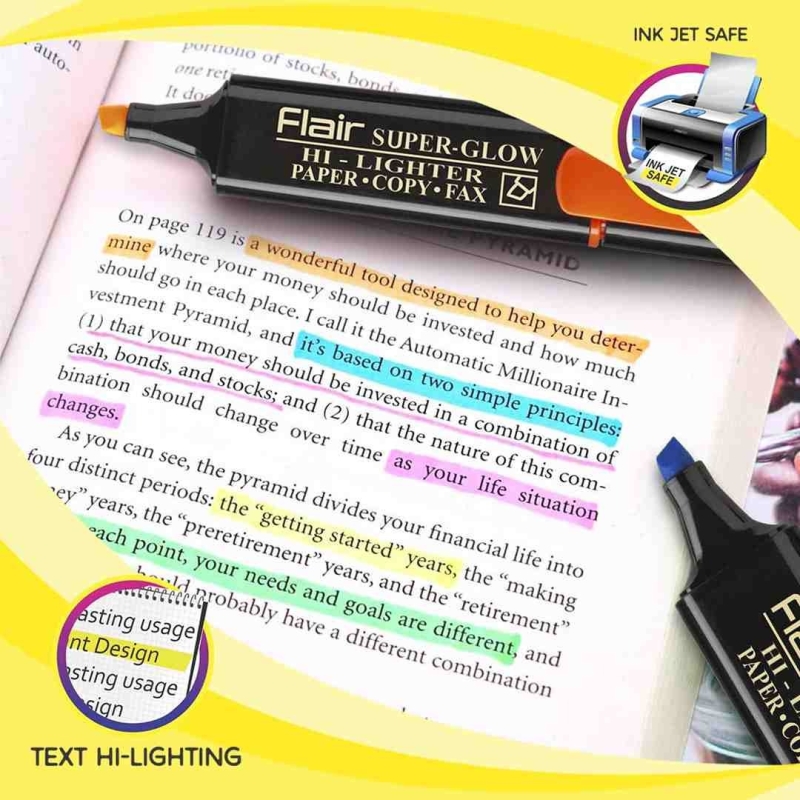 INK JET SAFE
INK JET
SAFE
auto-
portfolio of stocks, bonds
one
It
Flair SUPER-GLOW
HI - LIGHTER
PAPER • COPY • FAX
PYRAMID
On page 119 is a wonderful tool designed to help you deter-
mine where your money should be invested and how much
should go in each place. I call it the Automatic Millionaire In-
vestment Pyramid, and it's based on two simple principles:
(1) that your money should be invested in a combination of
cash, bonds, and stocks; and (2) that the nature of this com-
bination should change over time as your life situation
changes.
As you can see, the pyramid divides your financial life into
four distinct periods: the "getting started" years, the "making
ey" years, the "preretirement" years, and the "retirement"
each point, your needs and goals are different, and
probably have a different combination
HI - L
PAPER • CO
asting usage
nt Design
sting usage
sign
TEXT HI-LIGHTING